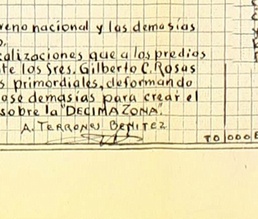 reno nacional y las demasias
o.
calizaciones que a los predios
te los Sres. Gilberto C. Rosas
s primordiales, deformando
ose demasias para crear el
sobre la "DECIMA ZONA".
A. TERRONES BENITEZ
TO 000 E